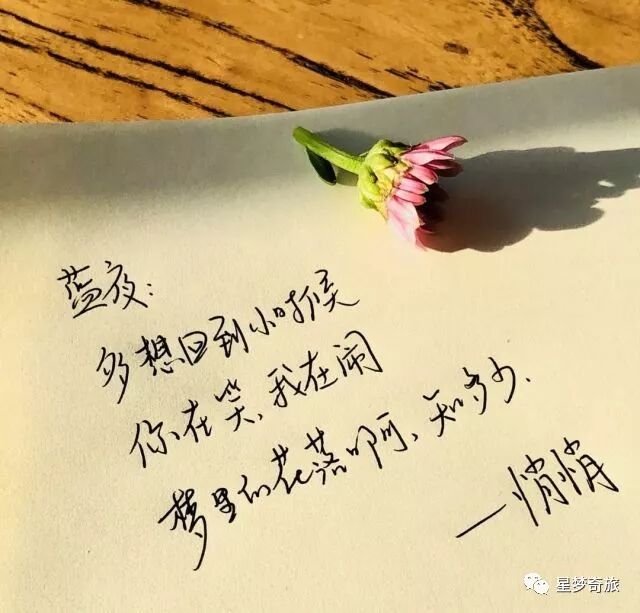 蓝夜：
多想回到小时候
你在笑，我在闹
梦里的花落啊，知多少.
—悄悄
星梦奇旅